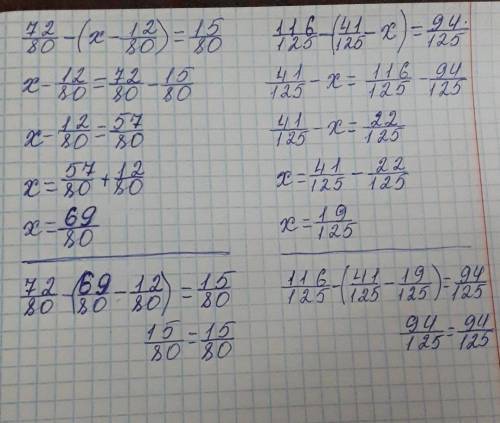 72/80 - (x - 12/80) = 15/80
x - 12/80 = 72/80 - 15/80
x - 12/80 = 57/80
x = 57/80 + 12/80
x = 69/80
72/80 - (69/80 - 12/80) = 15/80
15/80 = 15/80
116/125 - (41/125 - x) = 94/125
41/125 - x = 116/125 - 94/125
41/125 - x = 22/125
x = 41/125 - 22/125
x = 19/125
116/125 - (41/125 - 19/125) = 94/125
94/125 = 94/125